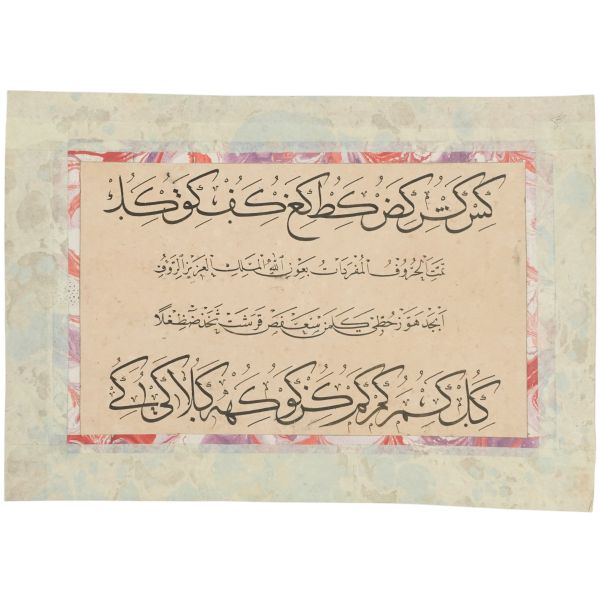 كس كش كض كط كع كف كق كك
تمت الحروف المفردات بعون الله الملك العزيز الرؤف
ابجد هوز حطي كلمن سعفص قرشت ثخذ ضظغلا
كل كم كم كم كن كو كه كلا كي كي